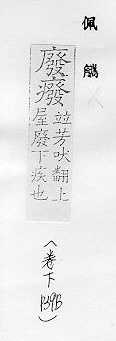 佩觿
廢癈
竝芳吠翻上
屋廢下疾也
（卷下 P39B）